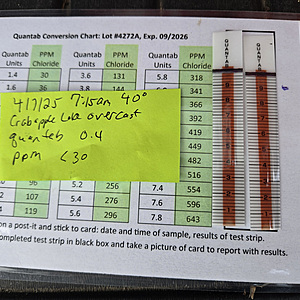 Quantab Conversion Chart: Lot #4272A, Exp. 09/2026
Quantab Units PPM Chloride Quantab Units PPM Chloride Quantab Units PPM Chloride
1.4 30 3.6 131 5.8 318
1.6 36 3.8 144 341
366
392
419
449
482
516
96 5.2 256 7.4 554
107 5.4 276 7.6 596
4 119 5.6 296 7.8 643
4/7/25 7:15am 40°
Crabapple Lake overcast
quantab 0.4
ppm <30
on a post-it and stick to card: date and time of sample, results of test strip.
completed test strip in black box and take a picture of card to report with results.
QUANTAB
QUANTAB